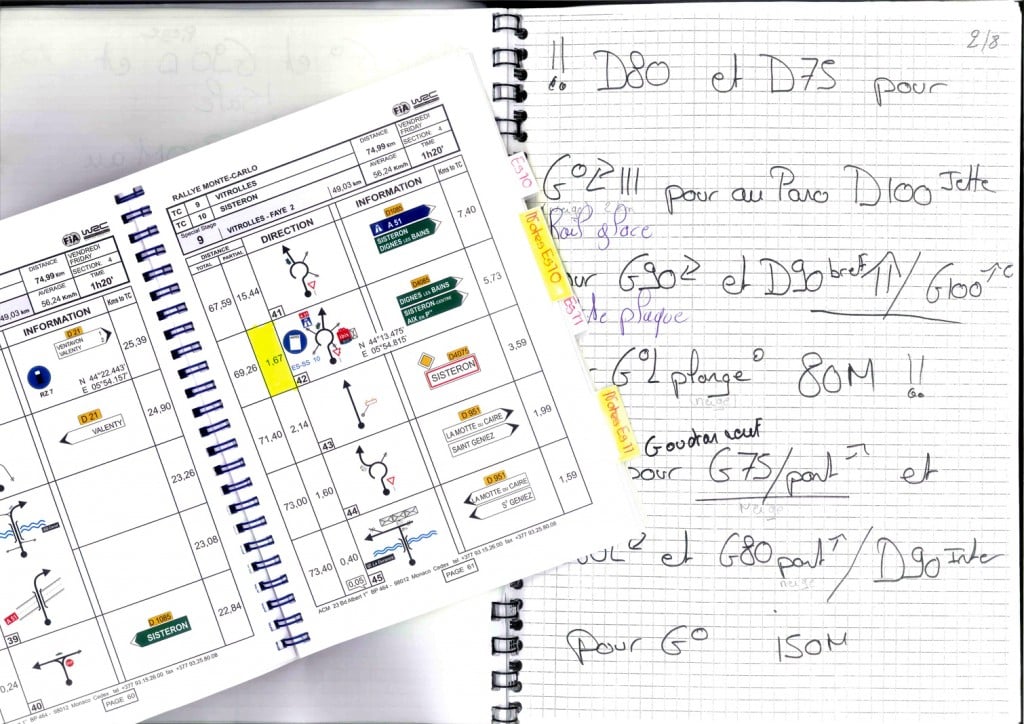 FIA WRC
DISTANCE
74,99 km
AVERAGE
56,24 Km/h
VENDREDI
FRIDAY
SECTION: 4
TIME
1h20'
49,03 km
INFORMATION
Kms to TC
D 21
VENTAVON
VALENTY
25,39
RZ 7
N 44°22.443'
E 05°54.157'
D 21
VALENTY
24,90
23,26
23,08
39
D 1085
SISTERON
22,84
0,24
40
ACM 23 Bd Albert 1er BP 464 - 98012 Monaco Cedex tel +377 93.15.26.00 fax +377 93.25.80.08
PAGE 60
FIA WRC
RALLYE MONTE-CARLO
TC 9 VITROLLES
TC 10 SISTERON
Special Stage
9
VITROLLES - FAYE 2
49,03 km
DISTANCE
74,99 km
AVERAGE
56,24 Km/h
VENDREDI
FRIDAY
SECTION: 4
TIME
1h20'
DISTANCE
TOTAL PARTIAL
DIRECTION
INFORMATION
Kms to TC
67,59 15,44
41
D1085
A 51
SISTERON
DIGNES LES BAINS
7,40
69,26 1,67
ES-SS 10
42
D4085
DIGNES LES BAINS
SISTERON CENTRE
AIX EN Pce
N 44°13.475'
E 05°54.815'
5,73
71,40 2,14
43
D4075
SISTERON
3,59
73,00 1,60
44
D 951
LA MOTTE DU CAIRE
SAINT GENIEZ
1,99
73,40 0,40
0,05
45
D 951
LA MOTTE DU CAIRE
St GENIEZ
1,59
ACM 23 Bd Albert 1er BP 464 - 98012 Monaco Cedex tel +377 93.15.26.00 fax +377 93.25.80.08
PAGE 61
Es 10
Notes Es 10
Es 11
Notes Es 11
2/8
!! D80 et D75 pour
G° !!! pour au Pano D100 Jette
Rail glace
G90 et D90 bref / G100 c
de plaque
- G° plonge 80M !!
neige
Goudron neuf
pour G75/pont et
neige
et G80 pont / D90 Inter
neige
pour G° 150M